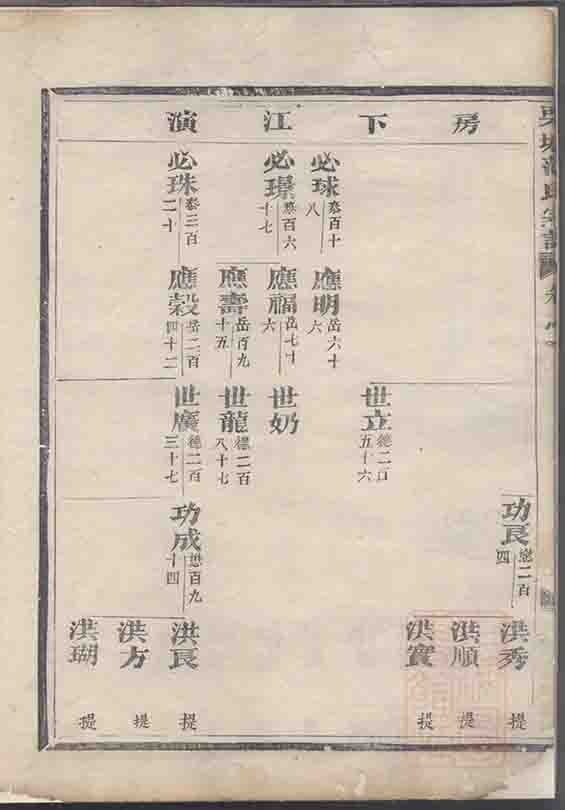 房下江演
功良 德二百四
洪秀 提
洪順 提
洪寶 提
世立 德二百五十六
必球 泰百十八
應明 岳六十六
必璟 泰百六十七
應福 岳七十六
世奶
應壽 岳百九十五
世龍 德二百八十七
必珠 泰三百二十
應穀 岳二百四十二
世廣 德二百三十七
功成 懋百九十四
洪良 提
洪方 提
洪瑚 提